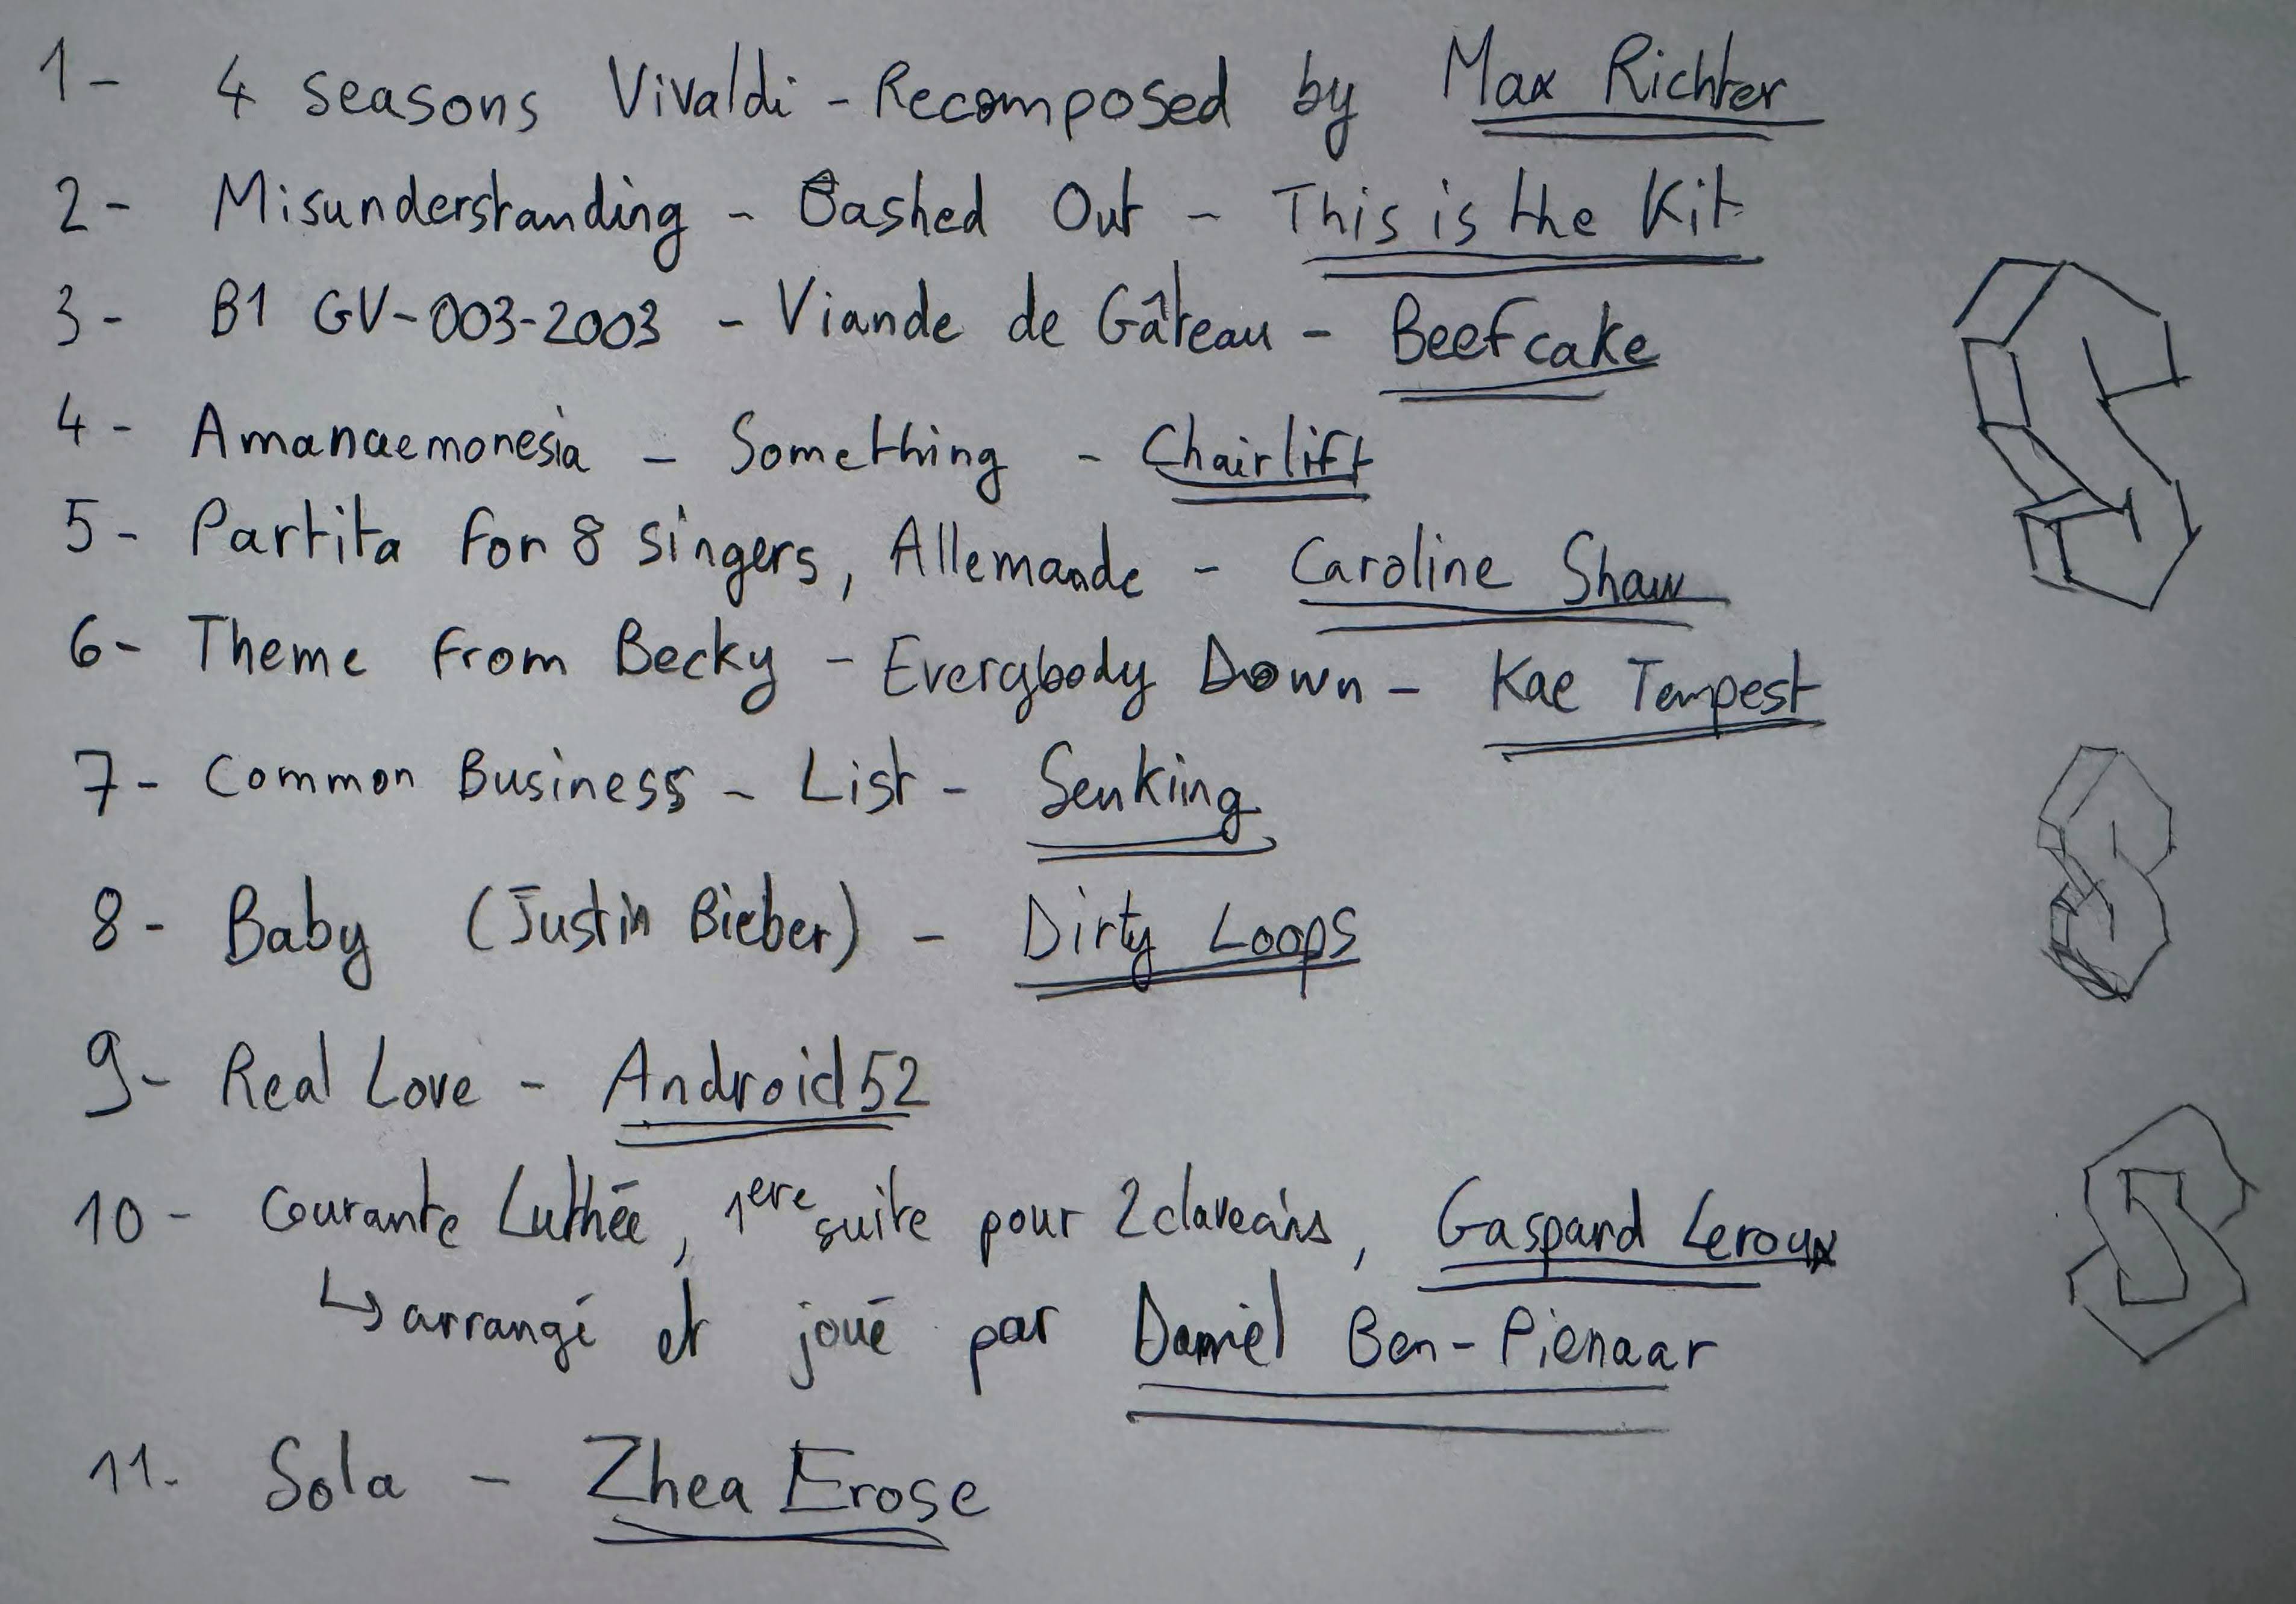 1- 4 seasons Vivaldi - Recomposed by Max Richter
2- Misunderstanding - Bashed Out - This is the Kit
3- B1 GV-003-2003 - Viande de Gâteau - Beefcake
4- Amanaemonesia - Something - Chairlift
5- Partita for 8 singers, Allemande - Caroline Shaw
6- Theme from Becky - Everybody Down - Kae Tempest
7- Common Business - List - Senking
8- Baby (Justin Bieber) - Dirty Loops
9- Real Love - Android52
10- Courante Luthée, 1ere suite pour 2 claveains, Gaspard Leroux
↳ arrangé et joué par Daniel Ben-Pienaar
11- Sola - Zhea Erose